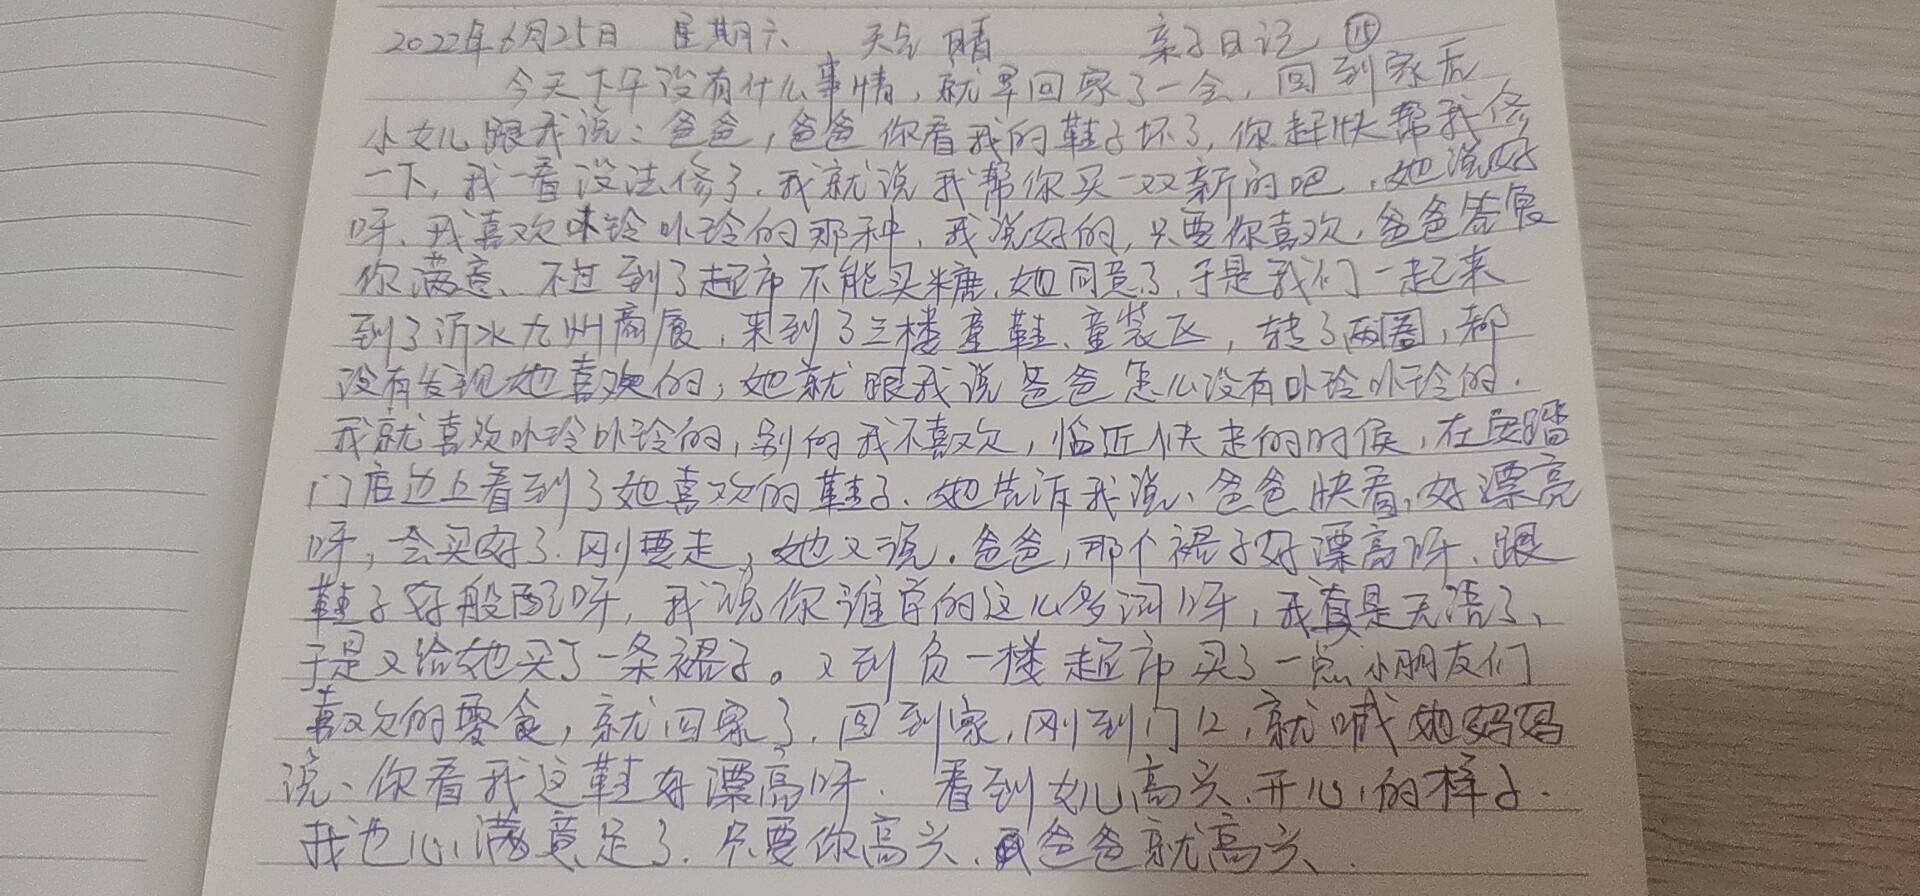 2022年6月25日 星期六 天气晴 亲子日记 ⑮
今天下午没有什么事情，就早回家了一会，回到家后
小女儿跟我说：爸爸，爸爸你看我的鞋子坏了，你赶快帮我修
一下，我一看没法修了，我就说我帮你买一双新的吧，她说好
呀、我喜欢咔铃咔玲的那种，我说好的，只要你喜欢，爸爸答应
你满意、不过到了超市不能买糖，她同意了，于是我们一起来
到了沂水九州商厦，来到了三楼童鞋、童装区，转了两圈，都
没有发现她喜欢的，她就跟我说爸爸怎么没有卟玲卟玲的.
我就喜欢卟玲卟玲的，别的我不喜欢，临近快走的时候，在安踏
门店边上看到了她喜欢的鞋子、她告诉我说、爸爸快看，好漂亮
呀，会买好了.刚要走，她又说.爸爸，那个裙子好漂亮呀.跟
鞋子好般配呀，我说你谁学的这么多词呀，我真是无语了、
于是又给她买了一条裙子。又到负一楼超市买了一点小朋友们
喜欢的零食，就回家了.回到家，刚到门口，就喊她妈妈
说、你看我这鞋好漂亮呀. 看到女儿高兴、开心的样子.
我也心满意足了.只要你高兴、爸爸就高兴.